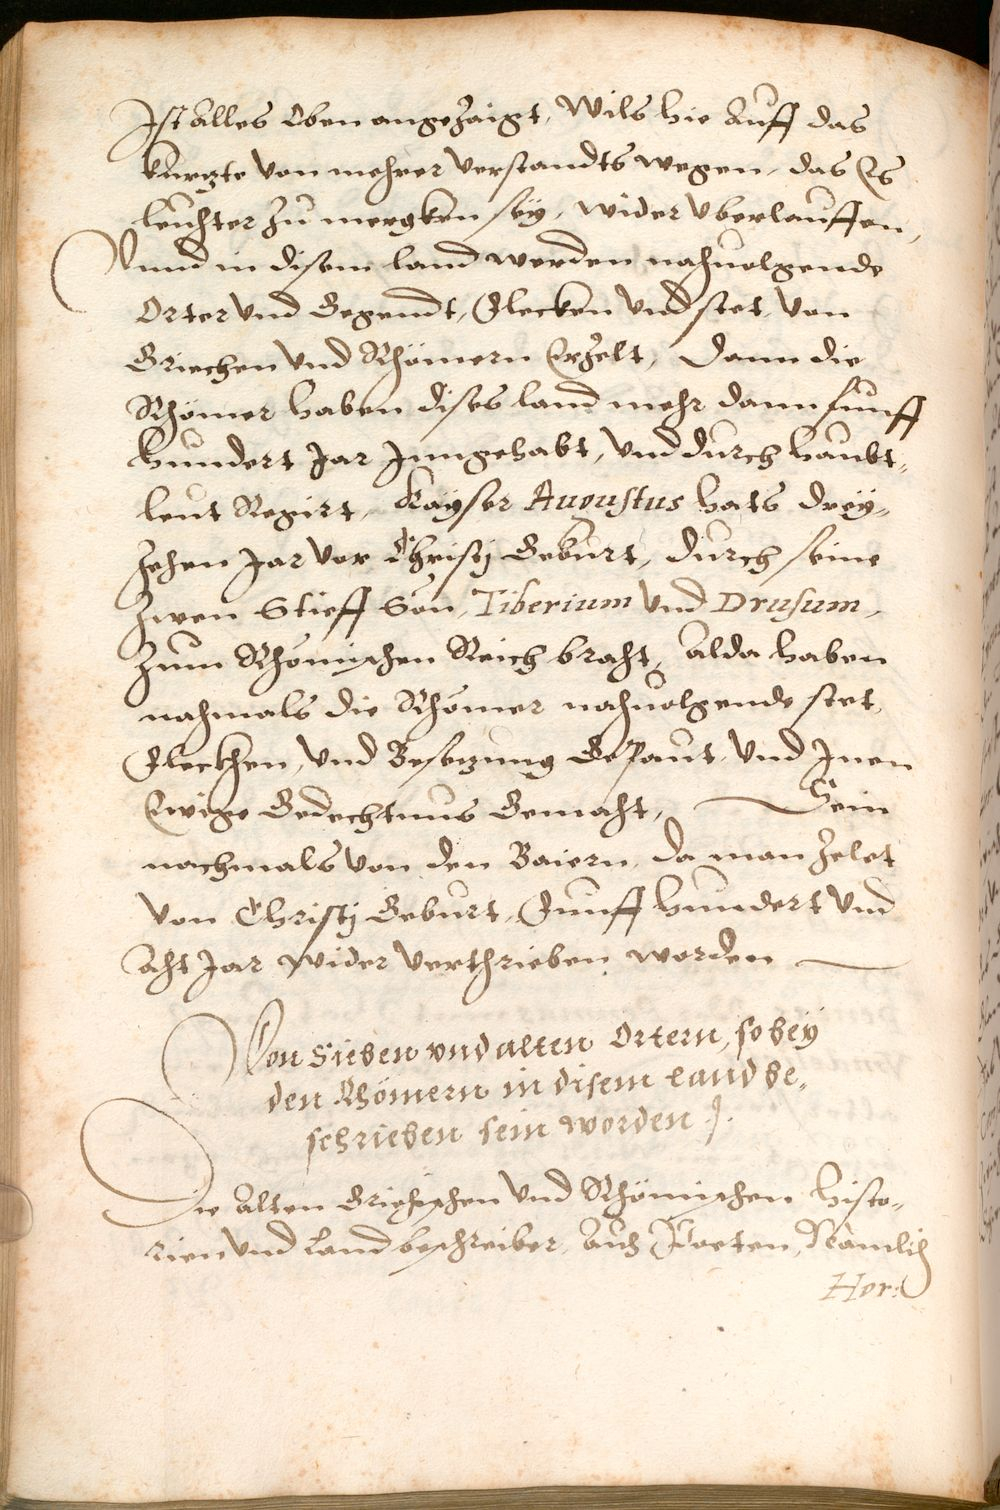 Ist alles Oben angezaigt, Wils hie Auff das
kurtzte von mehrer verstandts wegen, das Es
leuchter zu mergken sey, wider vberlauffen,
Vnnd in disem land werden nachuolgende
Örter vnd Gegendt, Flecken vnd stet, von
Griechen vnd Rhömern Erzelt, Dann die
Rhömer haben dises land mehr dann funff
hundert Jar Jnngehabt, vnd durch haubt„
leut Regirt, Kayser Augustus hats drey„
zehen Jar vor Christj Geburt, durch seine
zwen Stieff Sön, Tiberium vnd Drusum,
zum Rhömischen Reich bracht, alda haben
nachmals die Rhömer nachuolgende stet,
Fleckhen, vnd Besetzung Gepaut, vnd Jnen
Ewige Gedechtnus Gemacht, Sein
nachmals von den Baiern, da man zelet
von Christj Geburt, Funff hundert vnd
acht Jar wider verthrieben worden
Von Sieben vnd alten Ortern, so bey
den Rhömern in disem Land be„
schrieben sein worden
Die Alten Griechischen vnd Rhömischen Histo„
rien vnd Land beschreiber, auch Poeten, Nämlich
Hor: